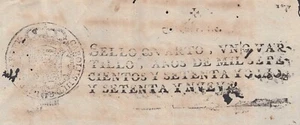 SELLO QVARTO, VN QVAR-
TILLO, AÑOS DE MIL SETE-
CIENTOS Y SETENTA Y OCHO
Y SETENTA Y NVEVE